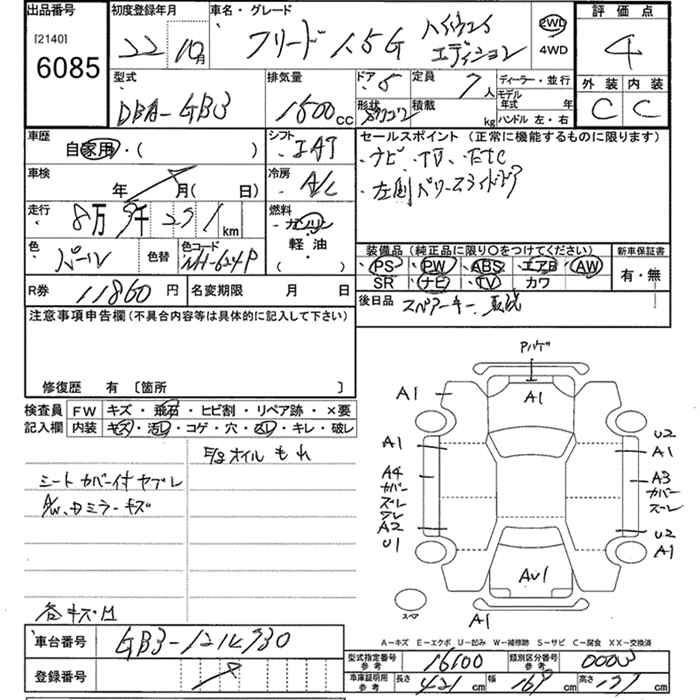 出品番号
[2140]
6085
初度登録年月
22 10月
車名・グレード
フリード 1.5G
エディション
2WD
4WD
評価点
4
外装 内装
C C
型式
DBA-GB3
排気量
1500cc
ドア 5
形状
定員 7人
積載 kg
ディーラー・並行
モデル年式 年
ハンドル 左・右
車歴
自家用・( )
シフト
車検
年 月( 日)
冷房
A/C
走行
8万 km
燃料
ガソリン
軽油
( )
色
パール
色替
色コード
NH-624P
R券 11860円
名変期限 月 日
セールスポイント (正常に機能するものに限ります)
ナビ・TV・ETC
装備品 (純正品に限り〇をつけてください)
PS PW ABS エアB AW
SR ナビ TV カワ
新車保証書
有・無
後日品
スペアーキー
注意事項申告欄 (不具合内容等は具体的に記入して下さい)
修復歴 有 〔箇所 〕
検査員記入欄
FW キズ・飛石・ヒビ割・リペア跡・×要
内装 キズ・汚レ・コゲ・穴・ムレ・キレ・破レ
オイルもれ
シートカバー付ヤブレ
ミラーキズ
各キズ
Pハゲ
A1
A1
A1
A4
カバー
ズレ
ワレ
A2
U1
U2
A1
A3
カバー
ズレ
U2
A1
AU1
A1
スペア
A-キズ E-エクボ U-凹み W-補修跡 S-サビ C-腐食 XX-交換済
車台番号
登録番号
型式指定番号 参考 16100
類別区分番号 参考 0003
車庫証明用 参考 長さ 421cm 幅 169cm 高さ cm